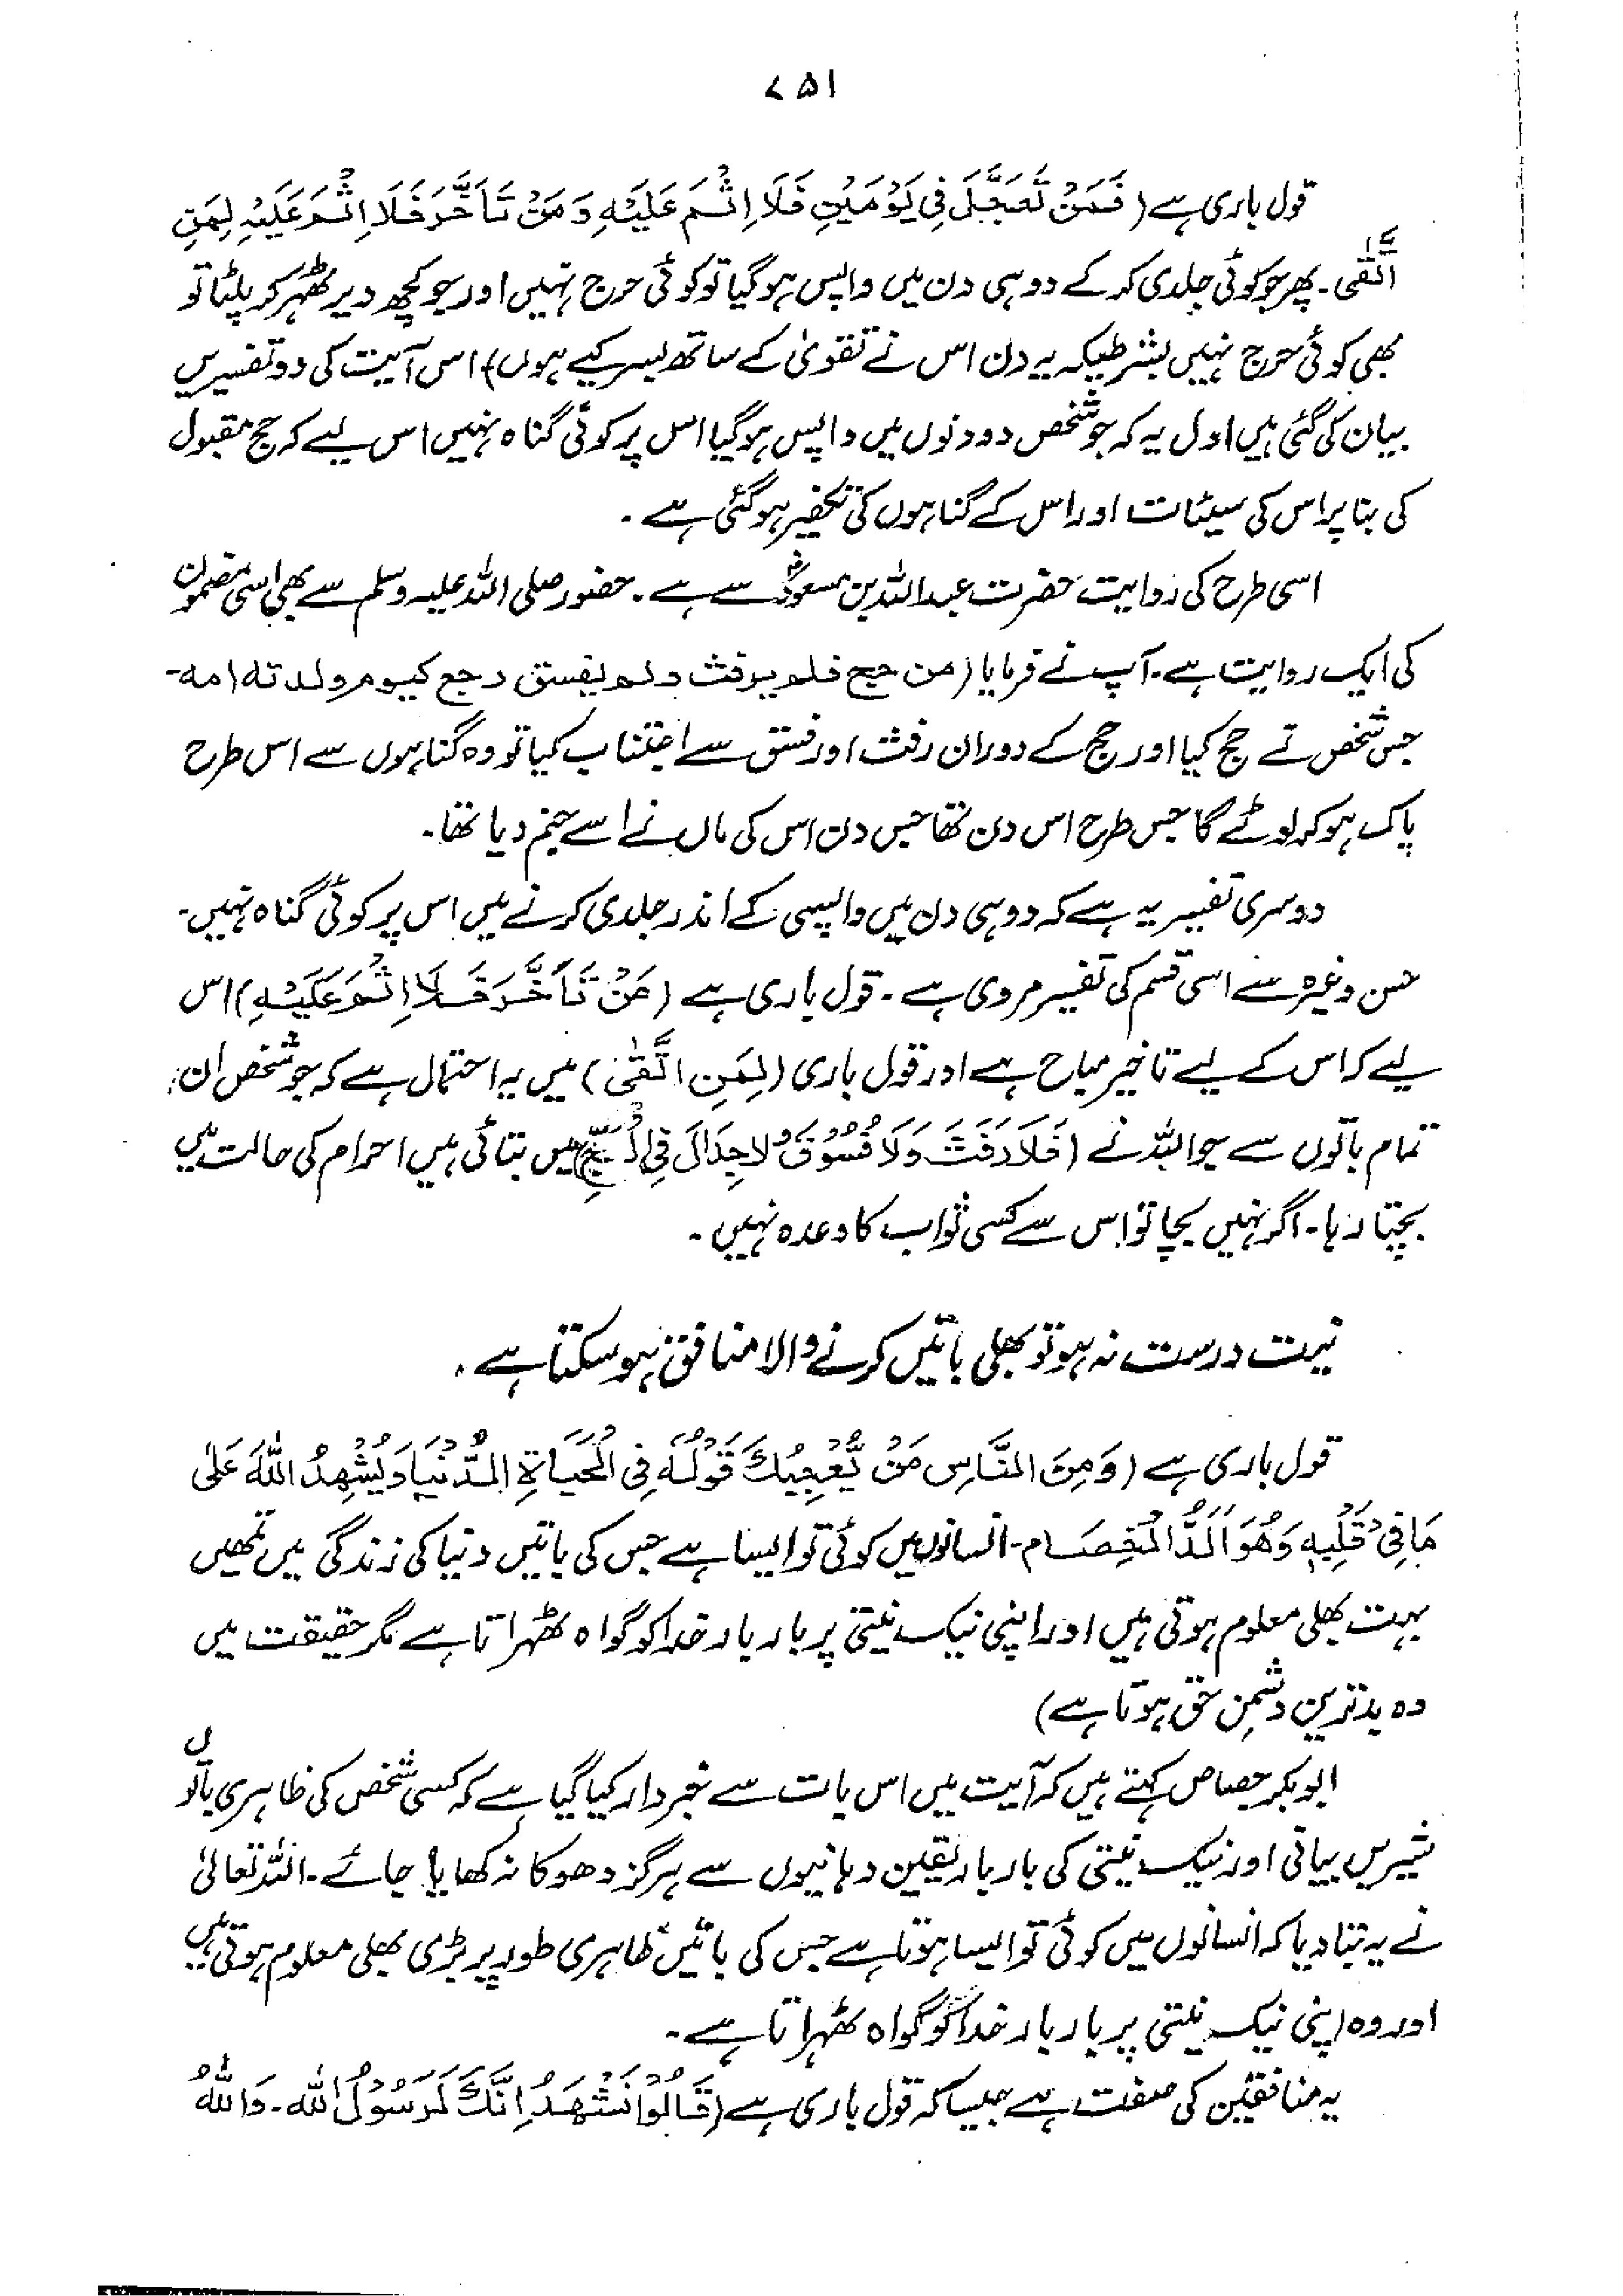 ۷۵۱
قول باری ہے (فَمَنْ تَعَجَّلَ فِی یَوْمَیْنِ فَلَا اِثْمَ عَلَیْہِ وَمَنْ تَأَخَّرَ فَلَا اِثْمَ عَلَیْہِ لِمَنِ
اتَّقٰی۔ پھر جو کوئی جلدی کر کے دو ہی دن میں واپس ہوگیا تو کوئی حرج نہیں اور جو کچھ دیر ٹھہر کر پلٹا تو
بھی کوئی حرج نہیں بشرطیکہ یہ دن اس نے تقویٰ کے ساتھ بسر کیے ہوں) اس آیت کی دو تفسیریں
بیان کی گئی ہیں اول یہ کہ جو شخص دو دنوں میں واپس ہوگیا اس پر کوئی گناہ نہیں اس لیے کہ حج مقبول
کی بنا پر اس کی سیئات اور اس کے گناہوں کی تکفیر ہوگئی ہے۔
اسی طرح کی روایت حضرت عبداللہ بن مسعودؓ سے ہے۔ حضور صلی اللہ علیہ وسلم سے بھی اسی مضمون
کی ایک روایت ہے۔ آپ نے فرمایا (من حج فلم یرفث ولم یفسق رجع کیوم ولدتہ امہ۔
جس شخص نے حج کیا اور حج کے دوران رفث اور فسق سے اجتناب کیا تو وہ گناہوں سے اس طرح
پاک ہو کر لوٹے گا جس طرح اس دن تھا جس دن اس کی ماں نے اسے جنم دیا تھا۔
دوسری تفسیر یہ ہے کہ دو ہی دن میں واپسی کے اندر جلدی کرنے میں اس پر کوئی گناہ نہیں۔
حسن وغیرہ سے اسی قسم کی تفسیر مروی ہے۔ قول باری ہے (مَنْ تَأَخَّرَ فَلَا اِثْمَ عَلَیْہِ) اس
لیے کہ اس کے لیے تاخیر مباح ہے اور قول باری (لِمَنِ اتَّقٰی) میں یہ احتمال ہے کہ جو شخص ان
تمام باتوں سے جو اللہ نے (فَلَا رَفَثَ وَلَا فُسُوْقَ وَلَا جِدَالَ فِی الْحَجِّ) میں بتائی ہیں احرام کی حالت میں
بچتا رہا۔ اگر نہیں بچا تو اس سے کسی ثواب کا وعدہ نہیں۔
نیت درست نہ ہو تو بھلی باتیں کرنے والا منافق ہو سکتا ہے۔
قول باری ہے (وَمِنَ النَّاسِ مَنْ یُّعْجِبُكَ قَوْلُہٗ فِی الْحَیَاۃِ الدُّنْیَا وَیُشْہِدُ اللّٰہَ عَلٰی
مَا فِیْ قَلْبِہٖ وَھُوَ اَلَدُّ الْخِصَام۔ انسانوں میں کوئی تو ایسا ہے جس کی باتیں دنیا کی زندگی میں تمھیں
بہت بھلی معلوم ہوتی ہیں اور اپنی نیک نیتی پر بار بار خدا کو گواہ ٹھہراتا ہے مگر حقیقت میں
وہ بدترین دشمنِ حق ہوتا ہے)
ابوبکر جصاص کہتے ہیں کہ آیت میں اس بات سے خبردار کیا گیا ہے کہ کسی شخص کی ظاہری باتوں
شیریں بیانی اور نیک نیتی کی بار بار یقین دہانیوں سے ہرگز دھوکا نہ کھایا جائے۔ اللہ تعالیٰ
نے یہ بتا دیا کہ انسانوں میں کوئی تو ایسا ہوتا ہے جس کی باتیں ظاہری طور پر بڑی بھلی معلوم ہوتی ہیں
اور وہ اپنی نیک نیتی پر بار بار خدا کو گواہ ٹھہراتا ہے۔
یہ منافقین کی صفت ہے جیسا کہ قول باری ہے (قَالُوْا نَشْہَدُ اِنَّكَ لَرَسُوْلُ اللّٰہ۔ وَاللّٰہُ